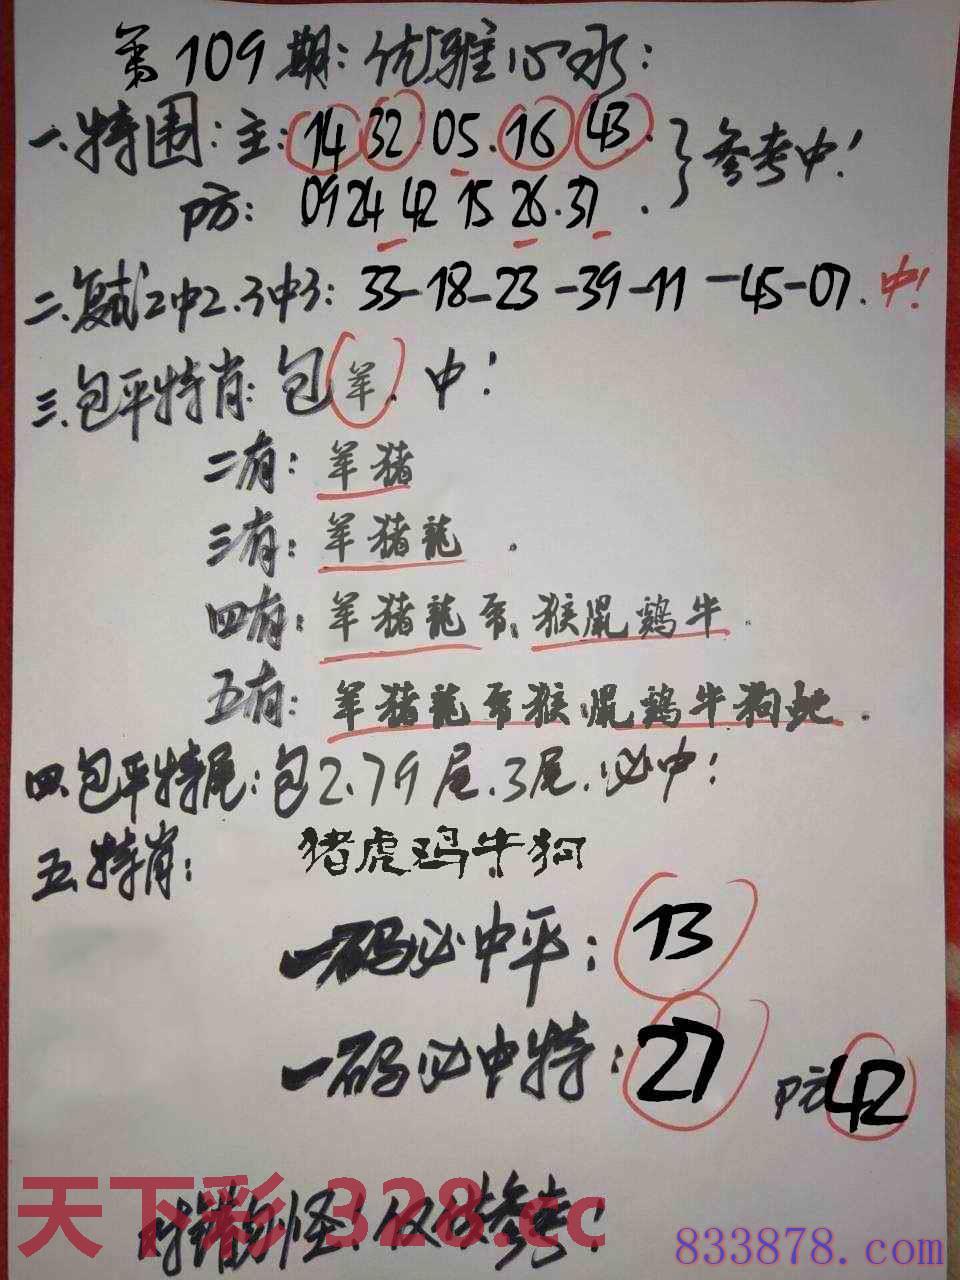 第109期:优雅心水:
一.特围:主:14 32 05.16 43.
防:09 24 42 15 26.37.
参考中!
二.复式2中2.3中3:33-18-23-39-11-45-07.中!
三.包平特肖:包羊.中!
二有:羊猪
三有:羊猪龍.
四有:羊猪龍 猴鼠鷄牛.
五有:羊猪龍 猴鼠鷄牛狗蛇.
四.包平特尾:包2.79尾.3尾.必中!
五.特肖:猪虎鸡牛狗
一码必中平:13
一码必中特:27 防42
对错勿怪!仅供参考!
天下彩 328.cc
833878.com